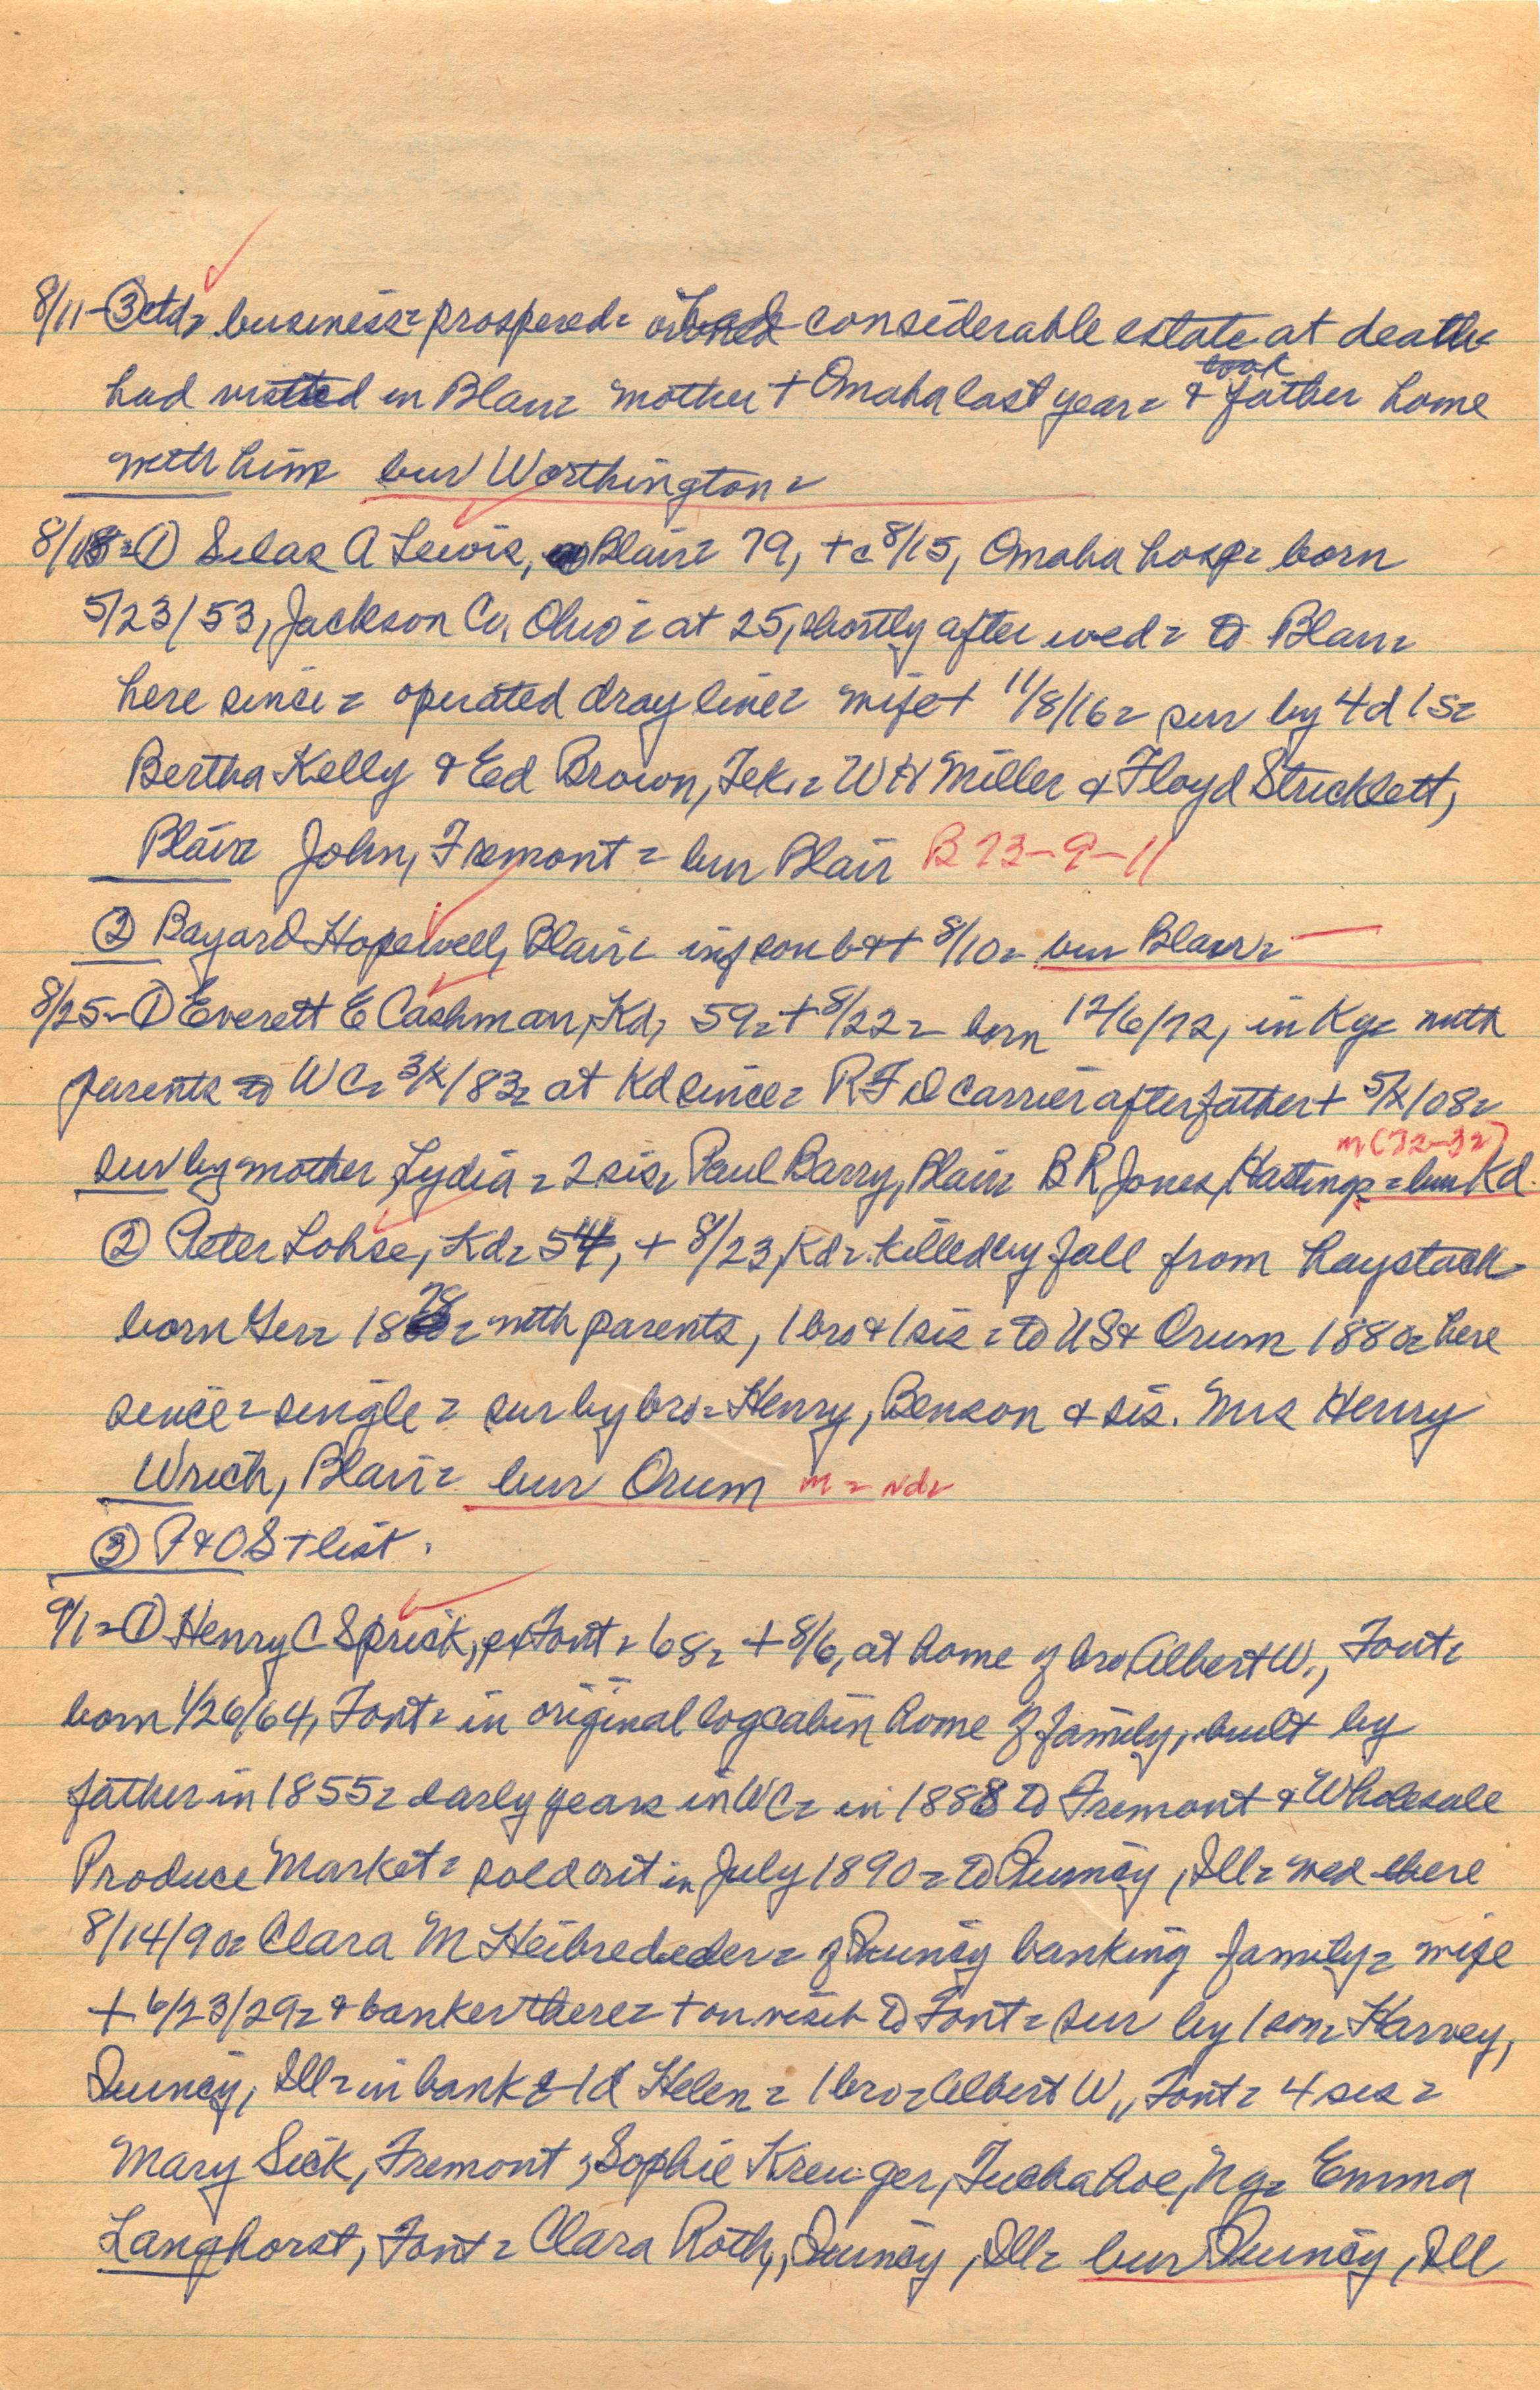 8/11-③ctd= business= prospered= had considerable estate at death=
had visited in Blair= mother + Omaha last year= & took father home
with him= bur Worthington=
8/18=① Silas A Lewis, Blair= 79, +c 8/15, Omaha hosp= born
5/23/53, Jackson Co, Ohio= at 25, shortly after wed= to Blair=
here since= operated dray line= wife + 11/8/16= sur by 4d 1s=
Bertha Kelly & Ed Brown, Tek.= W H Miller & Floyd Stricklett,
Blair= John, Fremont= bur Blair B 73-9-11
② Bayard Hopewell, Blair= inf son b&+ 8/10= bur Blair=
8/25-① Everett E Cashman, Kd, 59= + 8/22= born 12/6/72, in Ky= with
parents to WC= 3/x/83= at Kd since= RFD carrier after father + 5/x/08=
m (72-32)
sur by mother Lydia= 2 sis= Paul Barry, Blair= B R Jones, Hastings= bur Kd.
② Peter Lohse, Kd= 54, + 8/23, Kd= killed by fall from haystack=
born Ger= 1878= with parents, 1 bro & 1 sis= to US & Orum 1880= here
since= single= sur by bro= Henry, Benson & sis. Mrs Henry
Wrich, Blair= bur Orum m= nd=
③ P & OS + list.
9/1=① Henry C Sprick, ex Font= 68= + 8/6, at home of bro Albert W., Font=
born 1/26/64, Font= in original log cabin home of family, built by
father in 1855= early years in WC= in 1888 to Fremont & Wholesale
Produce Market= sold out in July 1890= to Quincy, Ill= wed there
8/14/90= Clara M Heibrededer= of Quincy banking family= wife
+ 6/23/29= & banker there= + on visit to Font= sur by 1 son= Harvey,
Quincy, Ill= in bank & 1d Helen= 1 bro= Albert W., Font= 4 sis=
Mary Sick, Fremont, Sophie Kreuger, Tuckahoe, NY= Emma
Langhorst, Font= Clara Roth, Quincy, Ill= bur Quincy, Ill